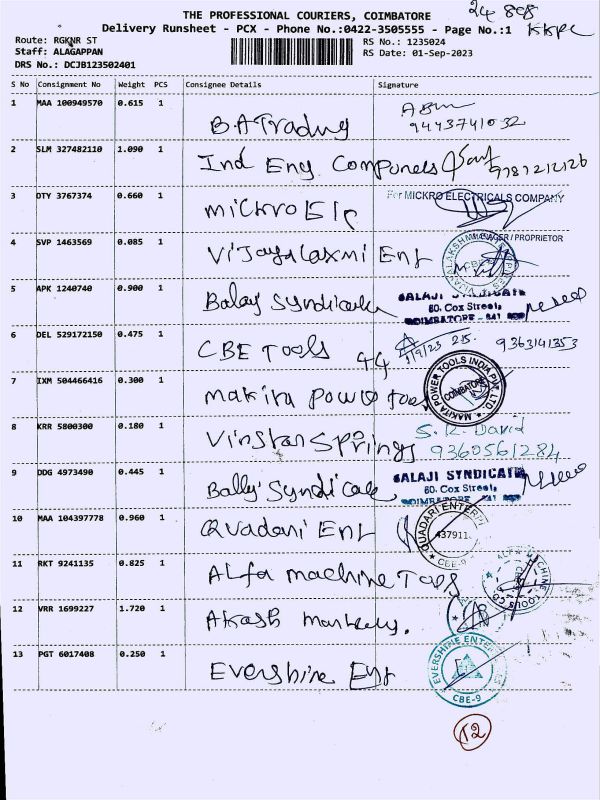 THE PROFESSIONAL COURIERS, COIMBATORE
24 808
Delivery Runsheet - PCX - Phone No.:0422-3505555 - Page No.:1
KKPL
Route: RGKNR ST
RS No.: 1235024
Staff: ALAGAPPAN
RS Date: 01-Sep-2023
DRS No.: DCJB123502401
S No Consignment No Weight PCS Consignee Details Signature
1 MAA 100949570 0.615 1
B.A Trading
9443741032
2 SLM 327482110 1.090 1
Ind Eng Componets
9787212126
3 DTY 3767374 0.660 1
For MICKRO ELECTRICALS COMPANY
mickro Elc
MANAGER / PROPRIETOR
4 SVP 1463569 0.085 1
Vijayalaxmi Ent
VIJAYALAKSHMI ENTERPRISES
CBE
5 APK 1240740 0.900 1
Balay Syndicate
BALAJI SYNDICATE
60. Cox Street,
COIMBATORE - 641
6 DEL 529172150 0.475 1
CBE Tools 44
1/9/23 2.15. 9363141353
7 IXM 504466416 0.300 1
makita power tools
MAKITA POWER TOOLS INDIA PVT. LTD.
COIMBATORE
8 KRR 5800300 0.180 1
Vinstar Springs
S. R. David
9360561284
9 DDG 4973490 0.445 1
Bally Syndicate
BALAJI SYNDICATE
60. Cox Street,
COIMBATORE 641
10 MAA 104397778 0.960 1
Quadari Ent
QUADARI ENTERPRI
437911
CBE-9
11 RKT 9241135 0.825 1
ALfa machine Tools
ALFA MACHINE TOOLS CO
12 VRR 1699227 1.720 1
Akash Markets.
13 PGT 6017408 0.250 1
Evershine Ent
EVERSHINE ENTERPRISES
CBE-9
12